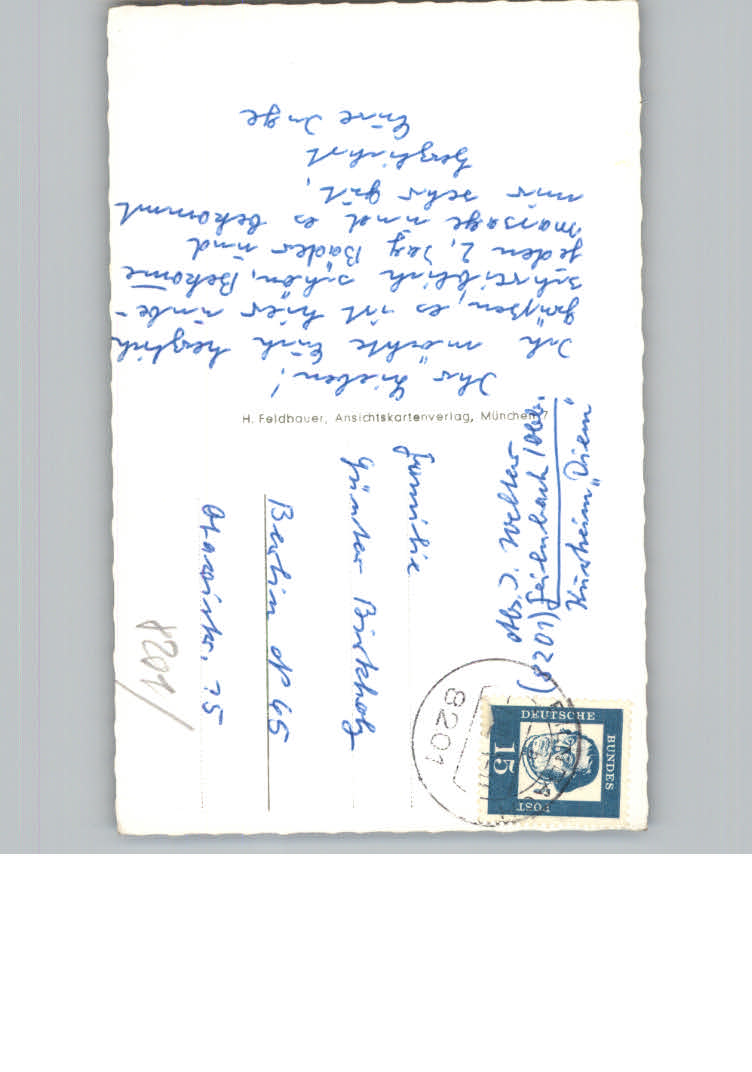 Ihr Lieben!
Ich möchte Euch herzlich
grüßen, es ist hier unbe-
schreiblich schön, Bekome
jeden 2. Tag Bäder und
Massage und es bekommt
mir sehr gut,
herzlichst
Eure Inge
H. Feldbauer, Ansichtskartenverlag, München 7
Abs. I. Welter
(8201) Feilnbach/Obb.
Kurheim "Diem"
Familie
Günter Birkholz
Berlin N 65
75
8201/
8201
DEUTSCHE
BUNDES
POST
15